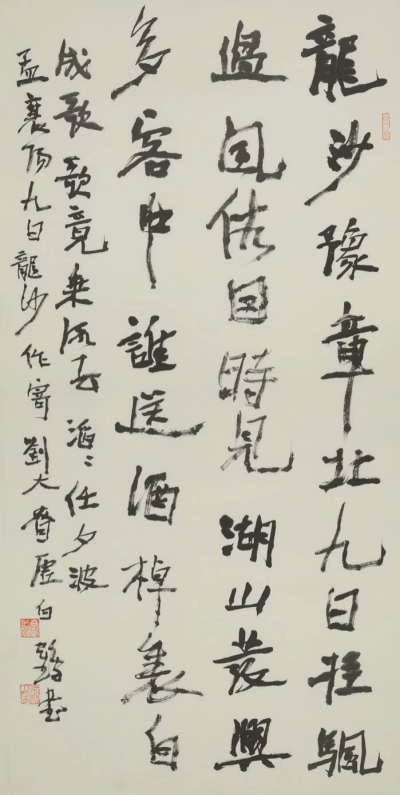 龍沙豫章北九日挂颿
過風俗因時見湖山發興
多客中誰送酒棹裏自
成歌歌竟乘流去滔〻任夕波
孟襄陽九日龍沙作寄劉大眘虛 書